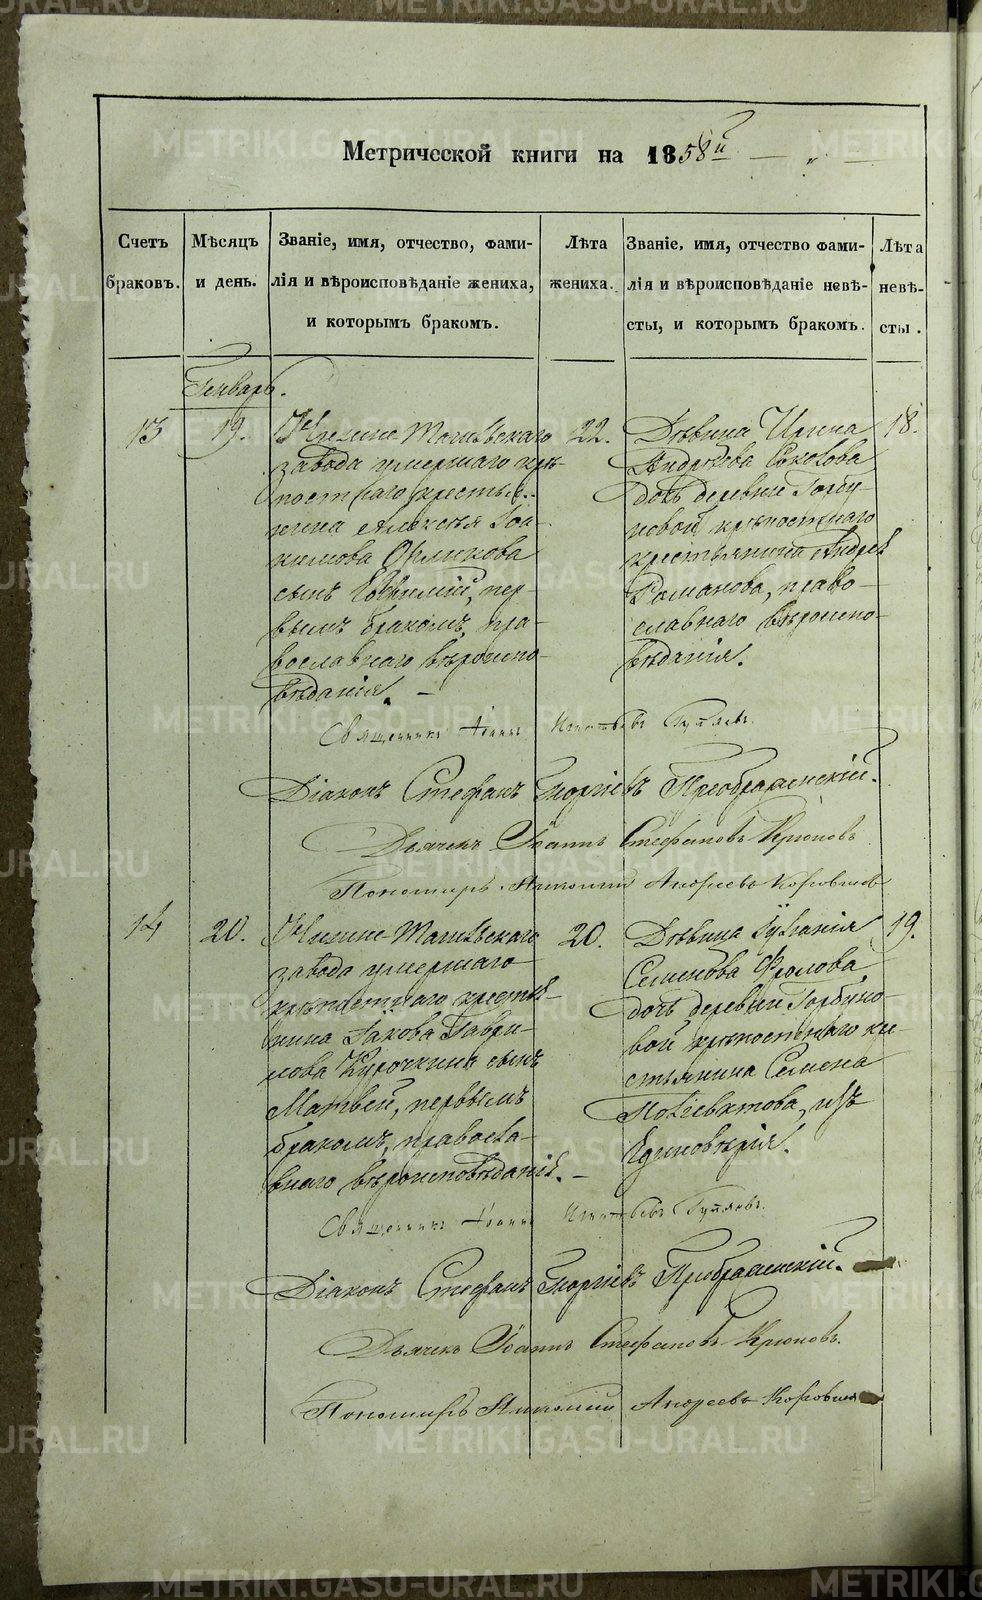 METRIKI.GASO-URAL.RU
Метрической книги на 1858й
Счетъ браковъ.
Мѣсяцъ и день.
Званіе, имя, отчество, фами-
лія и вѣроисповѣданіе жениха,
и которымъ бракомъ.
Лѣта жениха.
Званіе, имя, отчество фами-
лія и вѣроисповѣданіе невѣ-
сты, и которымъ бракомъ.
Лѣта невѣ-
сты.
Генварь.
13
19.
Нижне-Тагильскаго
завода умершаго крѣ-
постнаго крестья-
нина Алексѣя Іоа-
кимова
сынъ Евѳимій, пер-
вымъ бракомъ, пра-
вославнаго вѣроиспо-
вѣданія. –
22.
Дѣвица Ирина
Андрѣева Соколова
дочь деревни Горбу-
новой крѣпостнаго
крестьянина Андрея
Романова, право-
славнаго вѣроиспо-
вѣданія.
18.
Священникъ Іоаннъ
Діаконъ Стефанъ Георгіевъ Преображенскій.
Дьячекъ Іоаннъ Стефановъ Крюковъ
Пономарь Андреевъ
14
20.
Нижне-Тагильскаго
завода умершаго
крѣпостнаго крестья-
нина Іакова Гаври-
лова Курочкина сынъ
Матвей, первымъ
бракомъ, правосла-
внаго вѣроисповѣданія. –
20.
Дѣвица
Семенова Фролова
дочь деревни Горбуно-
вой крѣпостнаго кре-
стьянина Семена
изъ
Единовѣрія.
19.
Священникъ Іоаннъ
Діаконъ Стефанъ Георгіевъ Преображенскій.
Дьячекъ Іоаннъ Стефановъ Крюковъ.
Пономарь Андреевъ